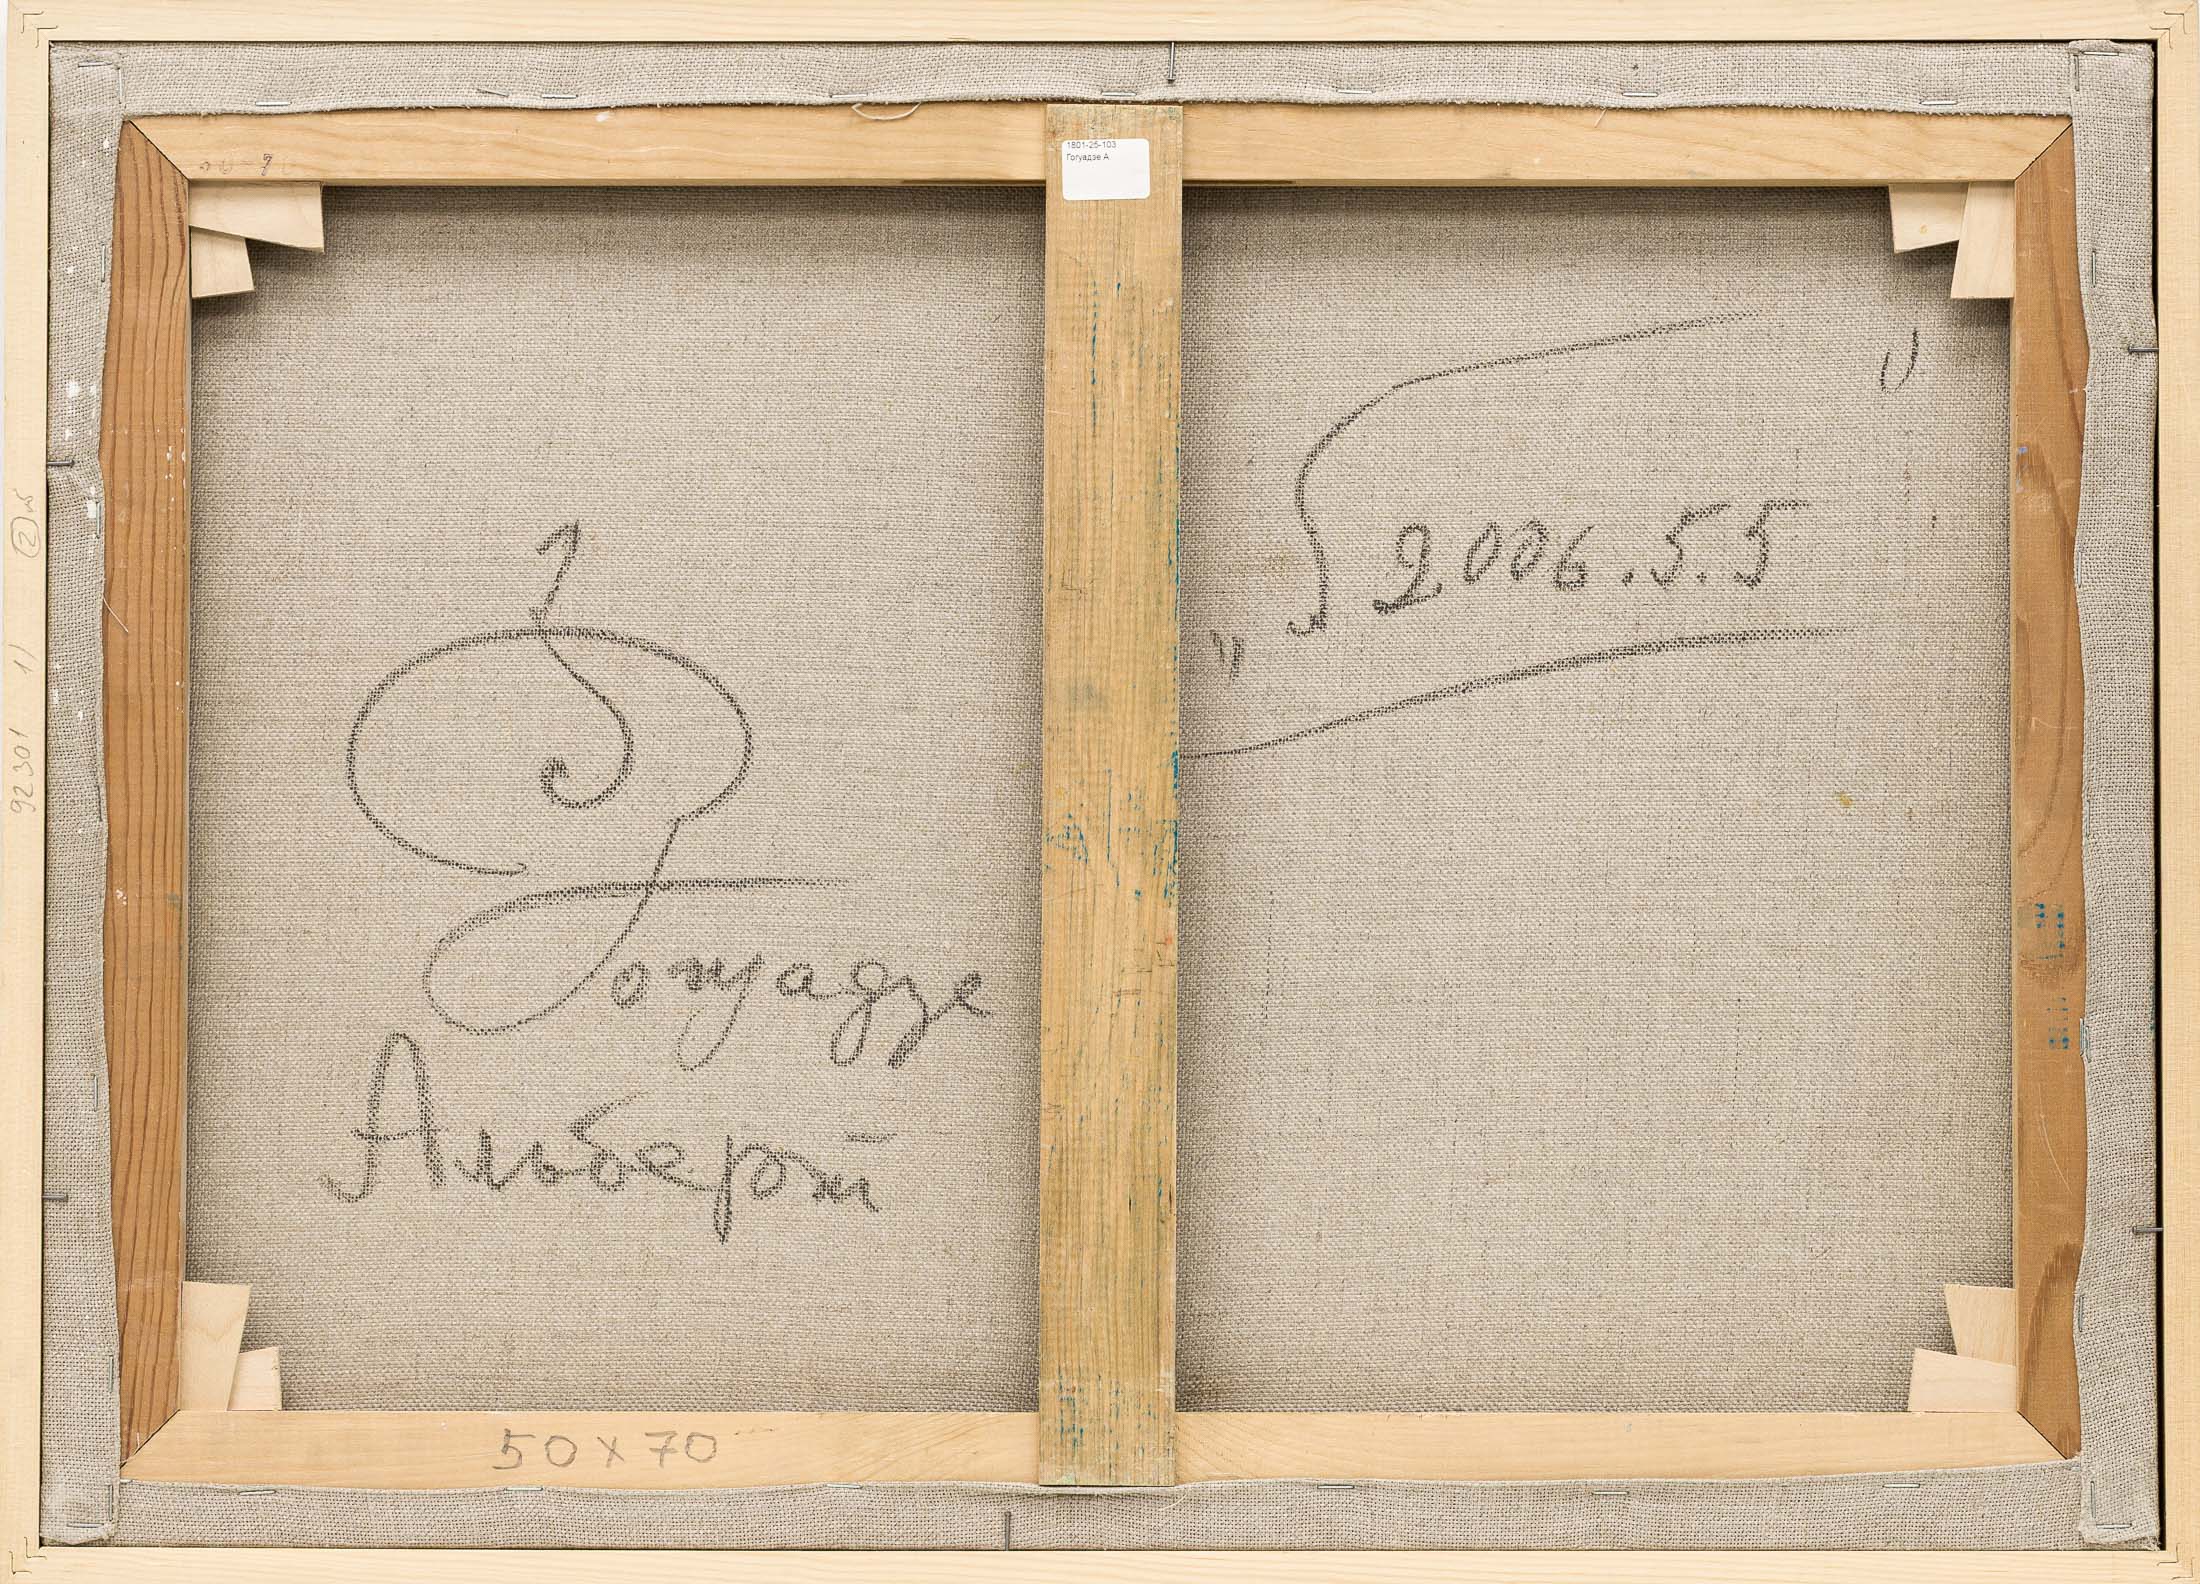 1801-25-103
Гогуадзе А
2006.5.5
Гогуадзе
Альберт
50 x 70
92301 1) 2